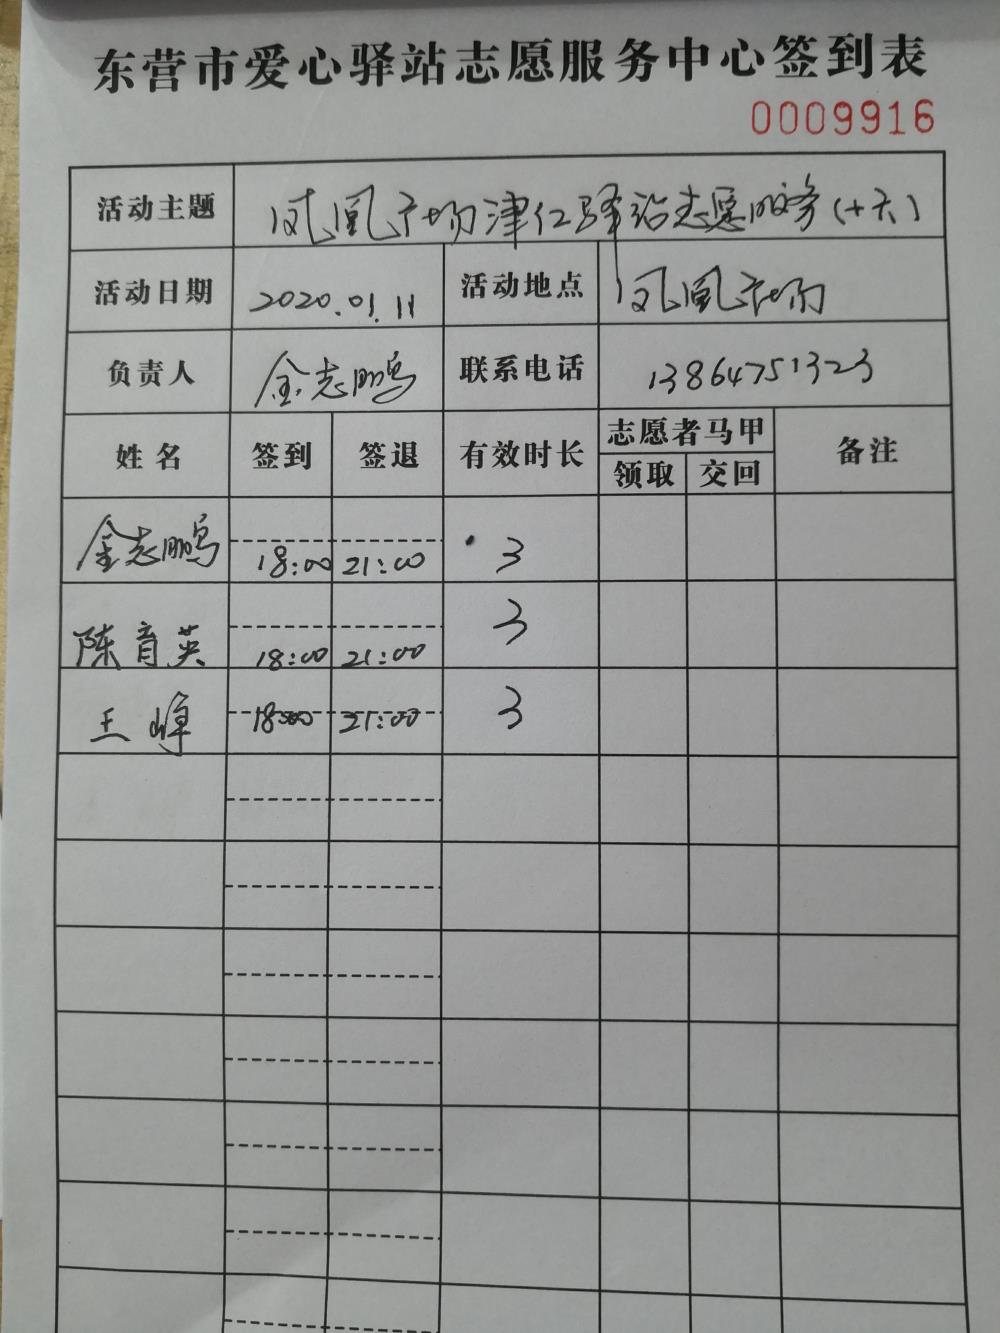 东营市爱心驿站志愿服务中心签到表
0009916
活动主题 凤凰广场津仁驿站志愿服务(十六)
活动日期 2020.01.11 活动地点 凤凰广场
负责人 金志鹏 联系电话 13864751323
姓名 签到 签退 有效时长 志愿者马甲 备注
领取 交回
金志鹏 18:00 21:00 3
陈育英 18:00 21:00 3
王峰 18:00 21:00 3